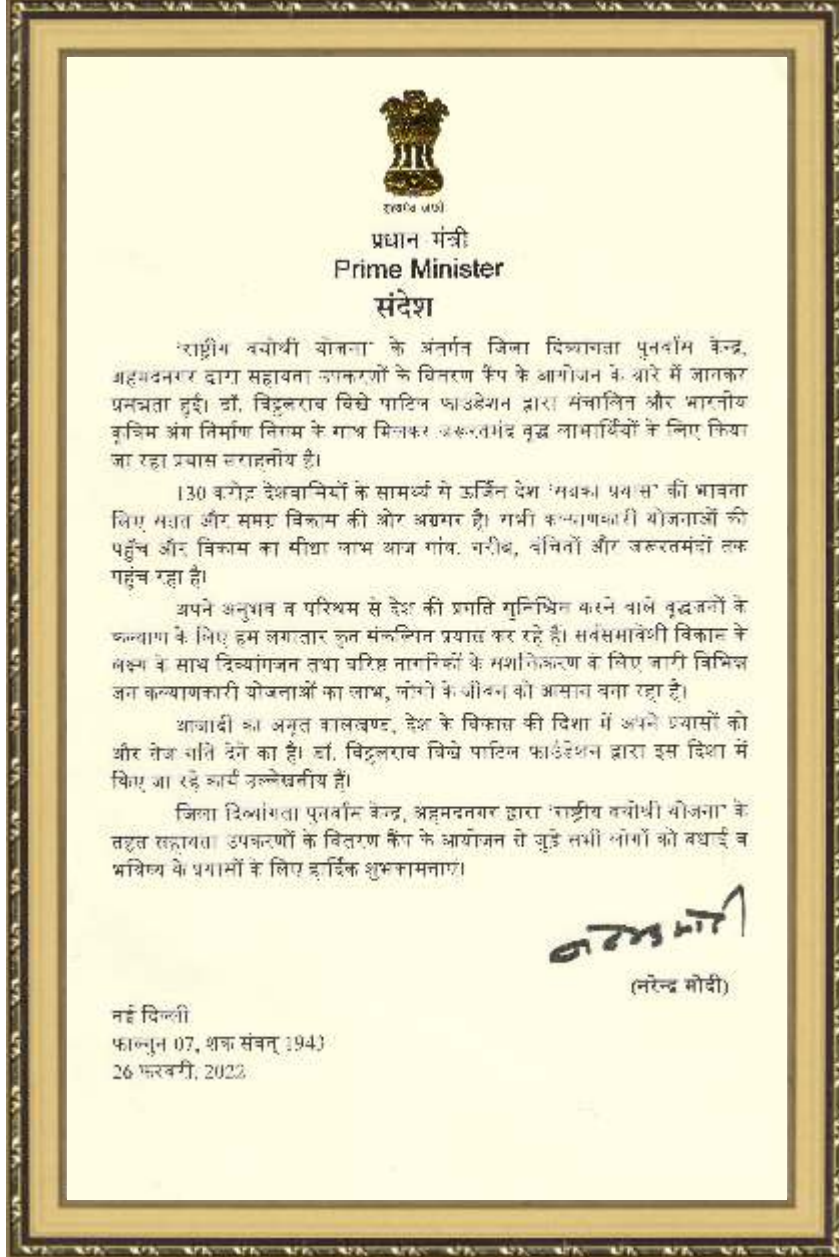 सत्यमेव जयते
प्रधान मंत्री
Prime Minister
संदेश
'राष्ट्रीय वयोश्री योजना' के अंतर्गत जिला दिव्यांगता पुनर्वास केन्द्र,
अहमदनगर द्वारा सहायता उपकरणों के वितरण कैंप के आयोजन के बारे में जानकर
प्रसन्नता हुई। डॉ. विट्ठलराव विखे पाटिल फाउंडेशन द्वारा संचालित और भारतीय
कृत्रिम अंग निर्माण निगम के साथ मिलकर जरूरतमंद वृद्ध लाभार्थियों के लिए किया
जा रहा प्रयास सराहनीय है।
130 करोड़ देशवासियों के सामर्थ्य से ऊर्जित देश 'सबका प्रयास' की भावना
लिए सतत और समग्र विकास की ओर अग्रसर है। सभी कल्याणकारी योजनाओं की
पहुँच और विकास का सीधा लाभ आज गांव, गरीब, वंचितों और जरूरतमंदों तक
पहुंच रहा है।
अपने अनुभव व परिश्रम से देश की प्रगति सुनिश्चित करने वाले वृद्धजनों के
कल्याण के लिए हम लगातार कृत संकल्पित प्रयास कर रहे हैं। सर्वसमावेशी विकास के
लक्ष्य के साथ दिव्यांगजन तथा वरिष्ठ नागरिकों के सशक्तिकरण के लिए जारी विभिन्न
जन कल्याणकारी योजनाओं का लाभ, लोगों के जीवन को आसान बना रहा है।
आजादी का अमृत कालखण्ड, देश के विकास की दिशा में अपने प्रयासों को
और तेज गति देने का है। डॉ. विट्ठलराव विखे पाटिल फाउंडेशन द्वारा इस दिशा में
किए जा रहे कार्य उल्लेखनीय हैं।
जिला दिव्यांगता पुनर्वास केन्द्र, अहमदनगर द्वारा 'राष्ट्रीय वयोश्री योजना' के
तहत सहायता उपकरणों के वितरण कैंप के आयोजन से जुड़े सभी लोगों को बधाई व
भविष्य के प्रयासों के लिए हार्दिक शुभकामनाएं।
नरेन्द्र मोदी
(नरेन्द्र मोदी)
नई दिल्ली
फाल्गुन 07, शक संवत् 1943
26 फरवरी, 2022